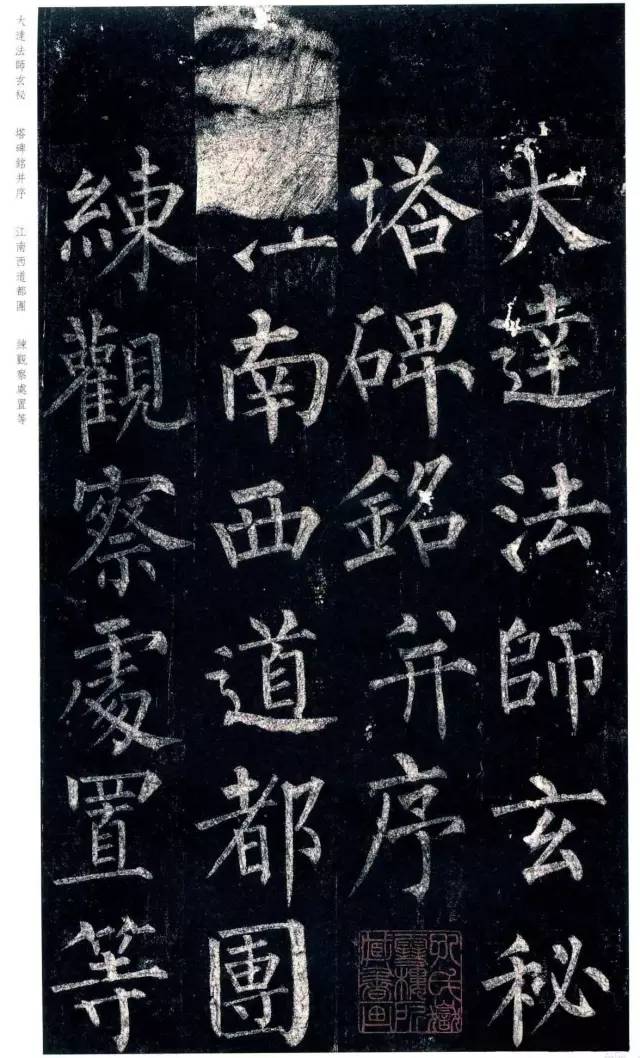 大達法師玄秘
塔碑銘并序
江南西道都團
練觀察處置等
大達法師玄秘 塔碑銘并序 江南西道都團 練觀察處置等